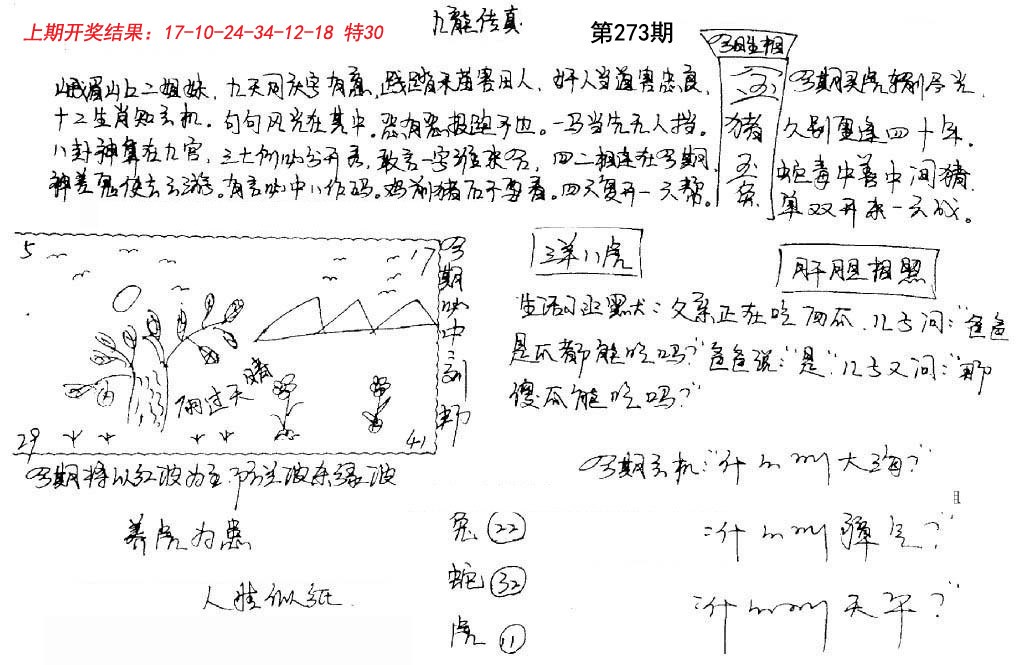 九龍传真
上期开奖结果：17-10-24-34-12-18 特30
第273期
峨眉山上二姐妹，九天同庆字有意，践踏禾苗害田人，奸人当道害忠良，
十二生肖知玄机。句句风光在其中。恶有恶报跑不也。一马当先无人挡。
八卦神算在九宫，敢言一字谁来否，四二相连在今期，
神差鬼使去云游。有言 中八作码。鸡前猪后不要看。四六复开一六帮。
今期生相
猪
兔
今期买虎转别号光，
久别重逢四十年。
蛇毒中兽中间猪，
单双开来一六成。
5
17
29
41
雨过天晴
今期必中一刻
今期将以红波为主 防兰波余绿波
三羊八虎
肝胆相照
生活小幽默大：父亲正在吃西瓜，儿子问："爸爸
是瓜都能吃吗？"爸爸说："是"儿子又问："那
傻瓜能吃吗？"
今期玄机："什么叫大海？"
："什么叫障气？"
："什么叫天平？"
养虎为患
人情似纸
兔 22
蛇 32
虎 11